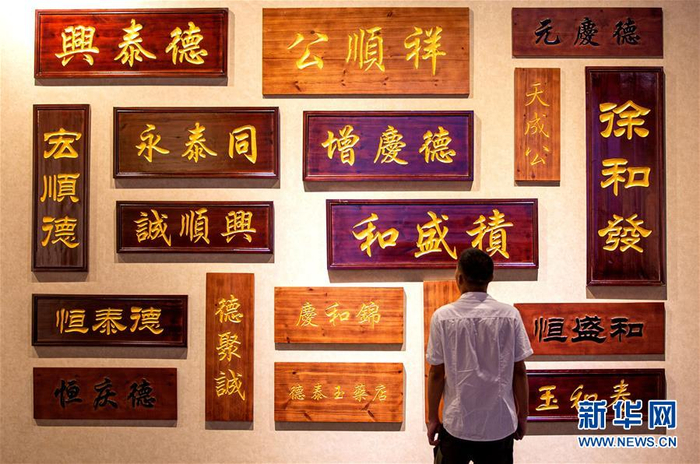 德泰興
祥順公
德慶元
宏順德
同泰永
德慶增
天成公
徐和發
興順誠
積盛和
德泰恒
德聚誠
錦和慶
和盛恒
德庆恒
德泰玉藥店
春和王
新华网
WWW.NEWS.CN